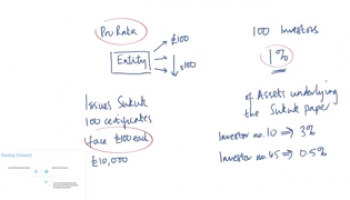 Pro Rata
Entity
£100
x100
Issues Sukuk
100 certificates
face £100 each
£10,000
100 Investors
1%
of Assets underlying
the Sukuk paper
Investor no.10 ⇒ 3%
Investor no.65 ⇒ 0.5%
Moving Forward